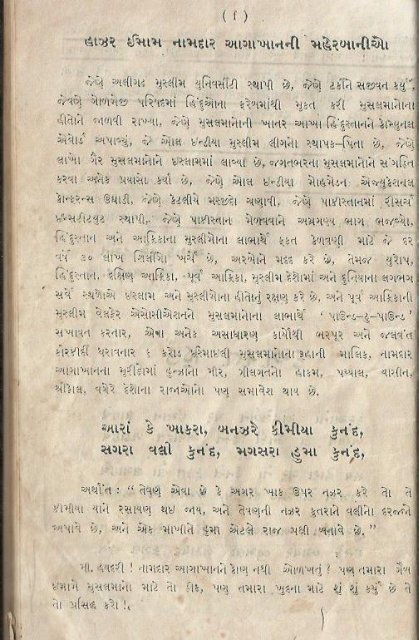 (૬)
હાઝર ઈમામ નામદાર આગાખાનની મહેરબાનીઓ
જેણે અલીગઢ મુસ્લીમ યુનિવર્સીટી સ્થાપી છે, જેણે ટર્કીને સજીવન કર્યું,
જેમણે ગોળમેજી પરિષદમાં હિંદુઓના ફરેબમાંથી મુક્ત કરી મુસલમાનોના
હીતોને જાળવી રાખ્યા, જેણે મુસલમાનોની ખાતર આખા હિંદુસ્તાનને કોમ્યુનલ
એવોર્ડ અપાવ્યું, જે ઓલ ઇન્ડીયા મુસ્લીમ લીગના સ્થાપક-પિતા છે, જેણે
લાખો ગૈર મુસલમાનોને ઇસ્લામમાં લાવ્યા છે, જગતભરના મુસલમાનોને સંગઠિત
કરવા અનેક પ્રવાસો કર્યા છે, જેણે ઓલ ઇન્ડીયા મોહમેડન એજ્યુકેશનલ
કોન્ફરન્સ ઉઘાડી, જેણે કેટલીયે મસ્જીદો ચણાવી, જેણે પાકીસ્તાનમાં રીસર્ચ
ઇન્સ્ટીટ્યુટ સ્થાપી, જેણે પાકીસ્તાન મેળવવાને અગ્રગણ્ય ભાગ ભજવ્યો,
હિંદુસ્તાન અને આફ્રિકાના મુસ્લીમોના લાભાર્થે ફક્ત કેળવણી માટે જે દર
વર્ષે ૩૦ લાખ શિલીંગો ખર્ચે છે, અરબોને મદદ કરે છે, તેમજ યુરોપ,
હિંદુસ્તાન, દક્ષિણ આફ્રિકા, પૂર્વ આફ્રિકા, મુસ્લીમ દેશોમાં અને દુનિયાના લગભગ
સર્વે સ્થળોએ ઇસ્લામ અને મુસ્લીમોના હીતોનું રક્ષણ કરે છે, અને પૂર્વ આફ્રિકાની
મુસ્લીમ વેલફેર એસોસીએશનને મુસલમાનોના લાભાર્થે 'પાઉન્ડ-ટુ-પાઉન્ડ'
સખાવત કરનાર, એવા અનેક અસાધારણ કાર્યોથી ભરપુર અને જ્વલંત
કારકીર્દી ધરાવનાર ૬ કરોડ ઇસ્માઈલી મુસલમાનોના રૂહાની માલિક, નામદાર
આગાખાનના મુરીદોમાં હુન્ઝાના મીર, ગીલગતના હાકમ, પંચાલ, યાસીન,
ચીત્રાલ, વગેરે દેશોના રાજાઓનો પણ સમાવેશ થાય છે.
આરાં કે ખાકરા, બનઝરે કીમીયા કુનંદ,
સગરા વલી કુનંદ, મગસરા હુમા કુનંદ,
અર્થાત : "તેવણ એવા છે કે અગર ખાક ઉપર નઝર કરે તો તે
કીમીયા યાને રસાયણ થઈ જાય, અને તેવણની નઝર કુતરાને વલીના દરજ્જાને
આપાવે છે, અને એક માખીને હુમા એટલે રાજ પક્ષી બનાવે છે."
મી. હવદરી ! નામદાર આગાખાનને કોણ નથી ઓળખતું ! પણ તમારા ગૈબ
ઇમામે મુસલમાનો માટે તો ઠીક, પણ તમારા ખુદના માટે શું શું કર્યું છે તે
તો પ્રસિદ્ધ કરો !.